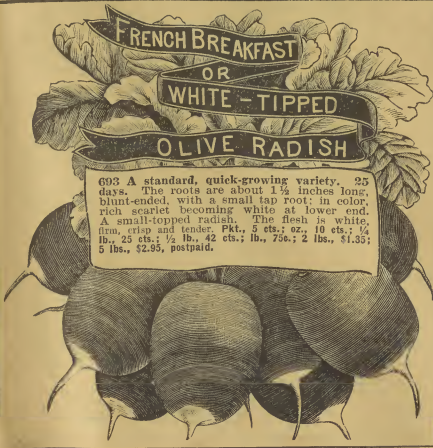 FRENCH BREAKFAST
OR
WHITE-TIPPED
OLIVE RADISH
693 A standard, quick-growing variety. 25
days. The roots are about 1½ inches long,
blunt-ended, with a small tap root; in color,
rich scarlet becoming white at lower end.
A small-topped radish. The flesh is white,
firm, crisp and tender. Pkt., 5 cts.; oz., 10 cts.; ¼
lb., 25 cts.; ½ lb., 42 cts.; lb., 75c.; 2 lbs., $1.35;
5 lbs., $2.95, postpaid.